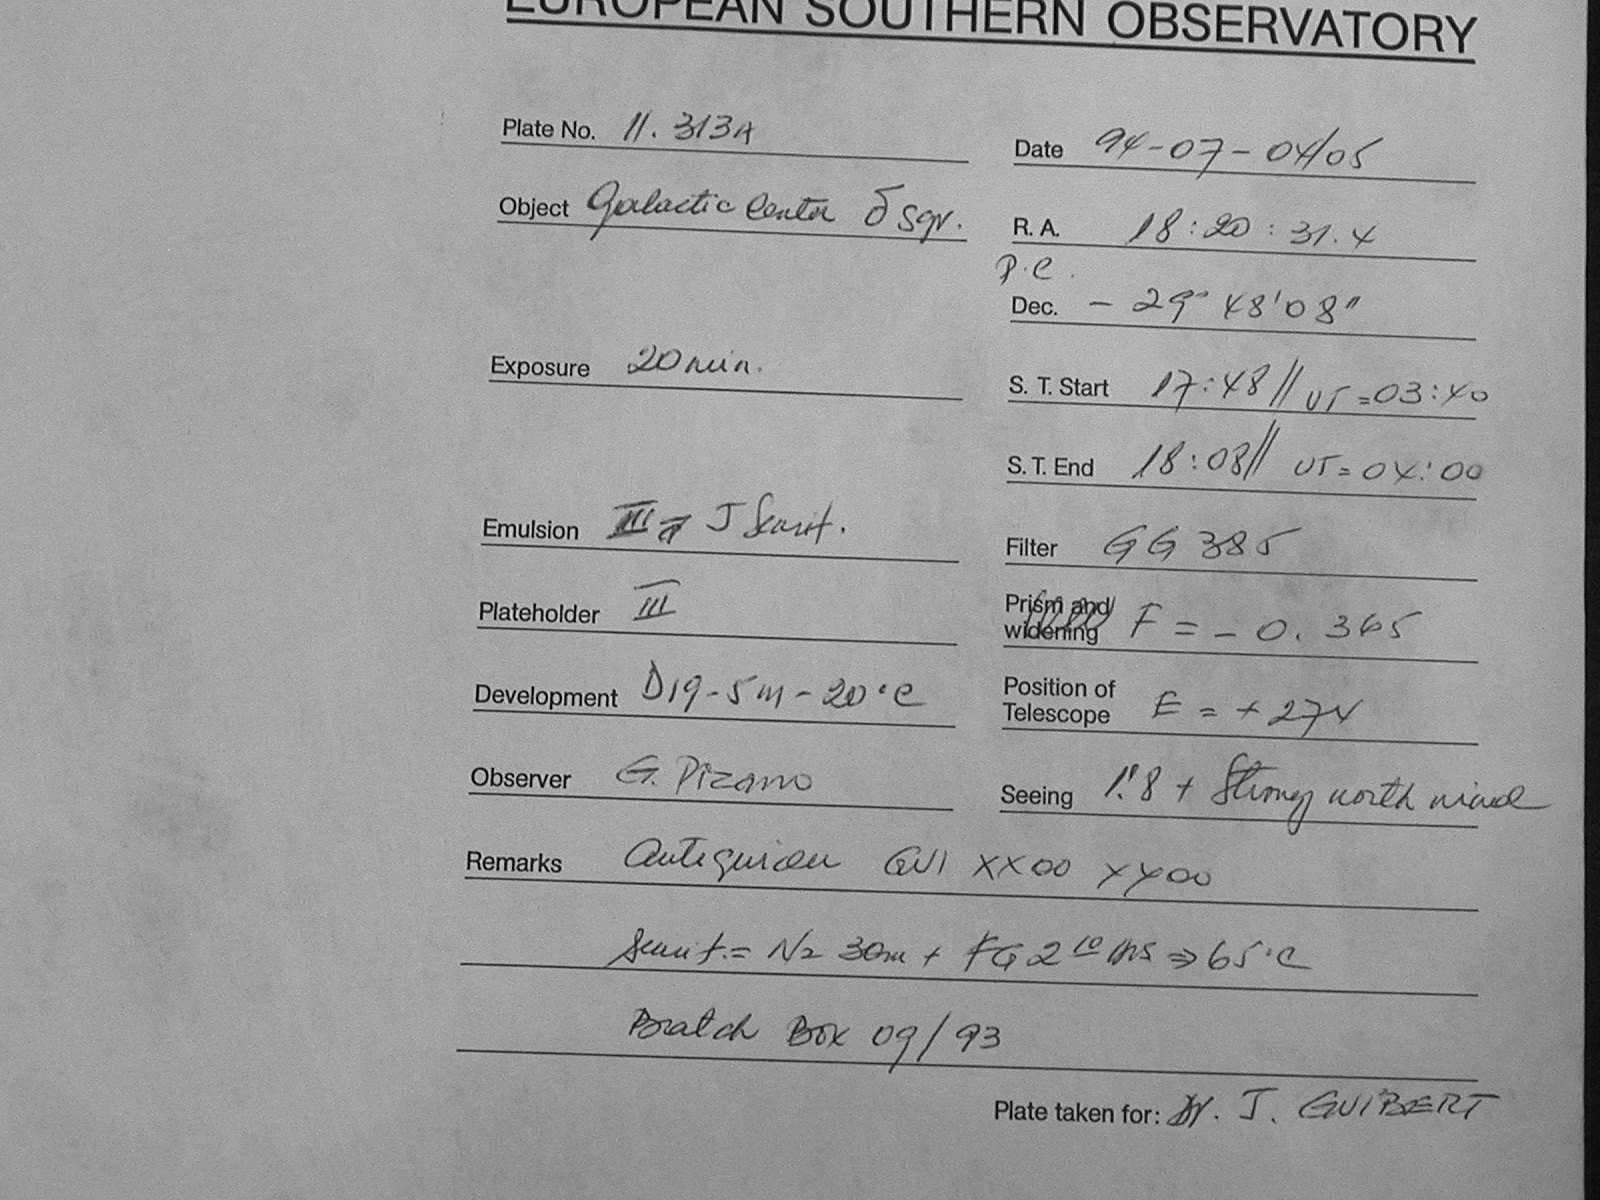 EUROPEAN SOUTHERN OBSERVATORY
Plate No. 11.313A
Date 94-07-04/05
Object Galactic Center δ Sgr.
R. A. 18:20:31.4
P.C.
Dec. - 29° 48'08"
Exposure 20 min.
S. T. Start 17:48 // UT = 03:40
S. T. End 18:08 // UT = 04:00
Emulsion III a J Sensit.
Filter GG 385
Plateholder III
Prism and widening F = - 0.365
Development D19-5m-20°C
Position of Telescope E = + 274
Observer G. Pizarro
Seeing 1."8 + Strong north wind
Remarks GUI XX00 YY00
Sensit. = N2 30m + FG 2 hrs ⇒ 65°C
Batch Box 09/93
Plate taken for: Dr. J. GUIBERT